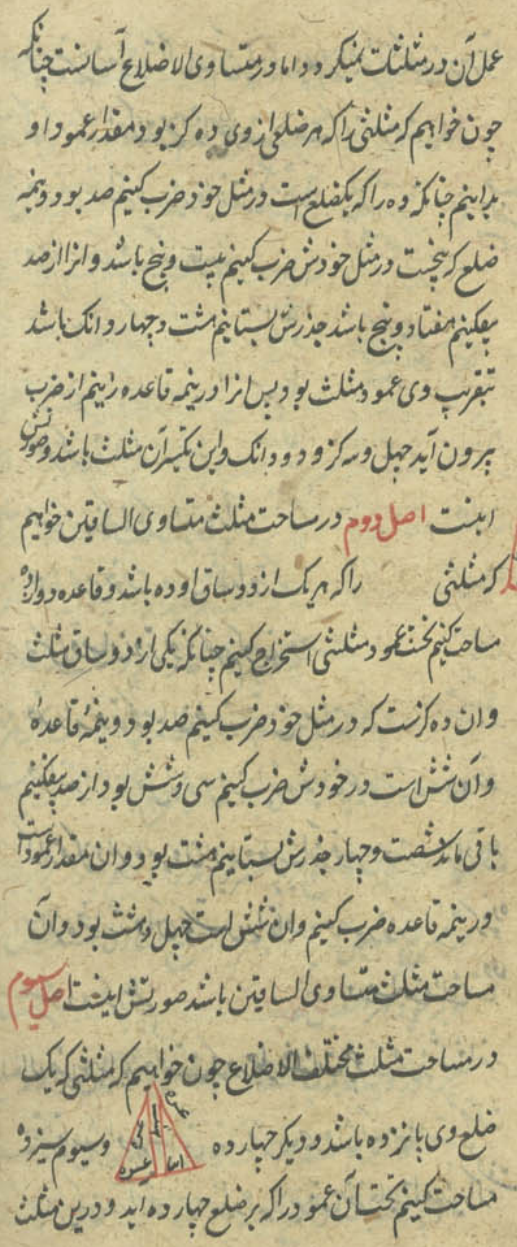 عمل آن در مثلثات نمیکردد اما در متساوی الاضلاع آسانست چنانکه
چون خواهیم که مثلثی را که هر ضلعی از وی ده کز بود مقدار عمود او
بدانیم چنانکه ده را که یکضلع است در مثل خود ضرب کنیم صد بود و نیمه
ضلع که پنجست در مثل خودش ضرب کنیم بیست و پنج باشد و انرا از صد
بیفکنیم هفتاد و پنج باشد جذرش بستانیم هشت و چهار دانک باشد
بتقریب وی عمود مثلث بود پس انرا در نیمه قاعده زنیم از ضرب
بیرون آید چهل و سه کز و دو دانک و این تکسیر آن مثلث باشد و صورتش
اینست اصل دوم در مساحت مثلث متساوی الساقین خواهیم
که مثلثی را که هر یک از دو ساق او ده باشد و قاعده دوازده
مساحت کنیم نخست عمود مثلثی استخراج کنیم چنانکه یکی از دو ساق مثلث
وان ده کزست که در مثل خود ضرب کنیم صد بود و نیمهٔ قاعدهٔ
وآن شش است در خودش ضرب کنیم سی و شش بود از صد بیفکنیم
باقی ماند شصت و چهار جذرش بستانیم هشت بود و ان مقدار عمودست
در نیمه قاعده ضرب کنیم وان شش است چهل و هشت بود وان
مساحت مثلث متساوی الساقین باشد صورتش اینست اصل سیوم
در مساحت مثلث مختلف الاضلاع چون خواهیم که مثلثی که یک
ضلع وی پانزده باشد و دیکر چهار ده وسیوم سیزده
مساحت کنیم نخست آن عمود را که بر ضلع چهار ده اید و درین مثلث